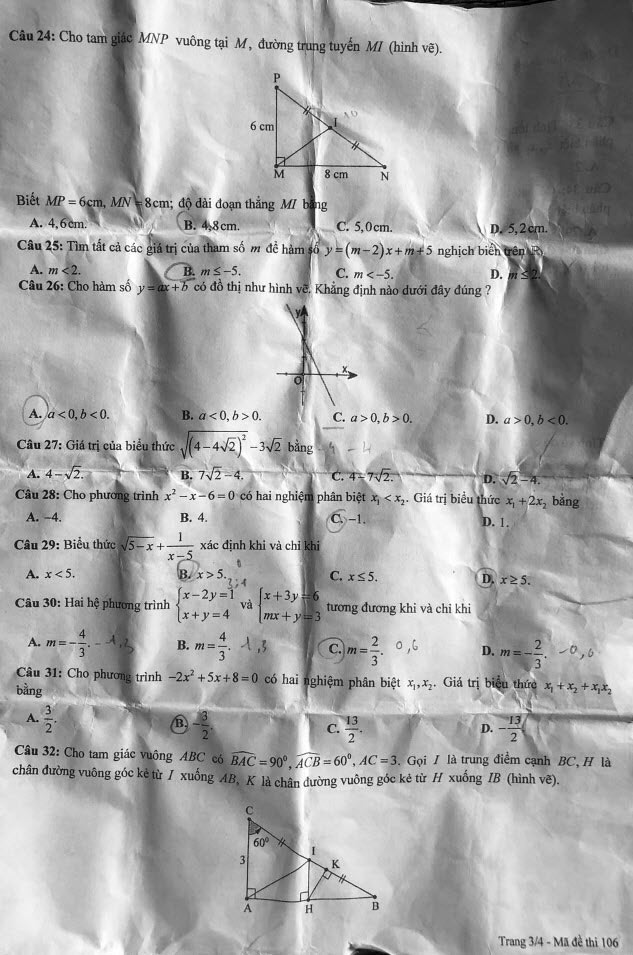 Câu 24: Cho tam giác MNP vuông tại M, đường trung tuyến MI (hình vẽ).
P
I
6 cm
M 8 cm N
Biết MP = 6cm, MN = 8cm; độ dài đoạn thẳng MI bằng
A. 4,6cm. B. 4,8cm. C. 5,0cm. D. 5,2cm.
Câu 25: Tìm tất cả các giá trị của tham số m để hàm số y = (m − 2)x + m + 5 nghịch biến trên
A. m < 2. B. m ≤ −5. C. m < −5. D. m ≤ 2.
Câu 26: Cho hàm số y = ax + b có đồ thị như hình vẽ. Khẳng định nào dưới đây đúng ?
y
x
O
A. a < 0, b < 0. B. a < 0, b > 0. C. a > 0, b > 0. D. a > 0, b < 0.
Câu 27: Giá trị của biểu thức √((4 − 4√2)²) − 3√2 bằng
A. 4 − √2. B. 7√2 − 4. C. 4 − 7√2. D. √2 − 4.
Câu 28: Cho phương trình x² − x − 6 = 0 có hai nghiệm phân biệt x₁ < x₂. Giá trị biểu thức x₁ + 2x₂ bằng
A. −4. B. 4. C. −1. D. 1.
Câu 29: Biểu thức √(5 − x) + 1/(x − 5) xác định khi và chỉ khi
A. x < 5. B. x > 5. C. x ≤ 5. D. x ≥ 5.
Câu 30: Hai hệ phương trình {x − 2y = 1; x + y = 4 và {x + 3y = 6; mx + y = 3 tương đương khi và chỉ khi
A. m = −4/3. B. m = 4/3. 1,3 C. m = 2/3. 0,6 D. m = −2/3. −0,6
Câu 31: Cho phương trình −2x² + 5x + 8 = 0 có hai nghiệm phân biệt x₁, x₂. Giá trị biểu thức x₁ + x₂ + x₁x₂
bằng
A. 3/2. B. −3/2. C. 13/2. D. −13/2.
Câu 32: Cho tam giác vuông ABC có BAC = 90⁰, ACB = 60⁰, AC = 3. Gọi I là trung điểm cạnh BC, H là
chân đường vuông góc kẻ từ I xuống AB, K là chân đường vuông góc kẻ từ H xuống IB (hình vẽ).
C
60⁰
I
3 K
A H B
Trang 3/4 - Mã đề thi 106